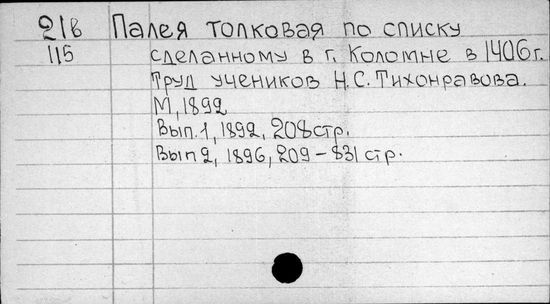 21в Палея толковая по списку
115 сделанному в г. Коломне в 1406 г.
Труд учеников Н.С. Тихонравова.
М, 1892
Вып. 1, 1892, 208 стр.
Вып 2, 1896, 209-831 стр.